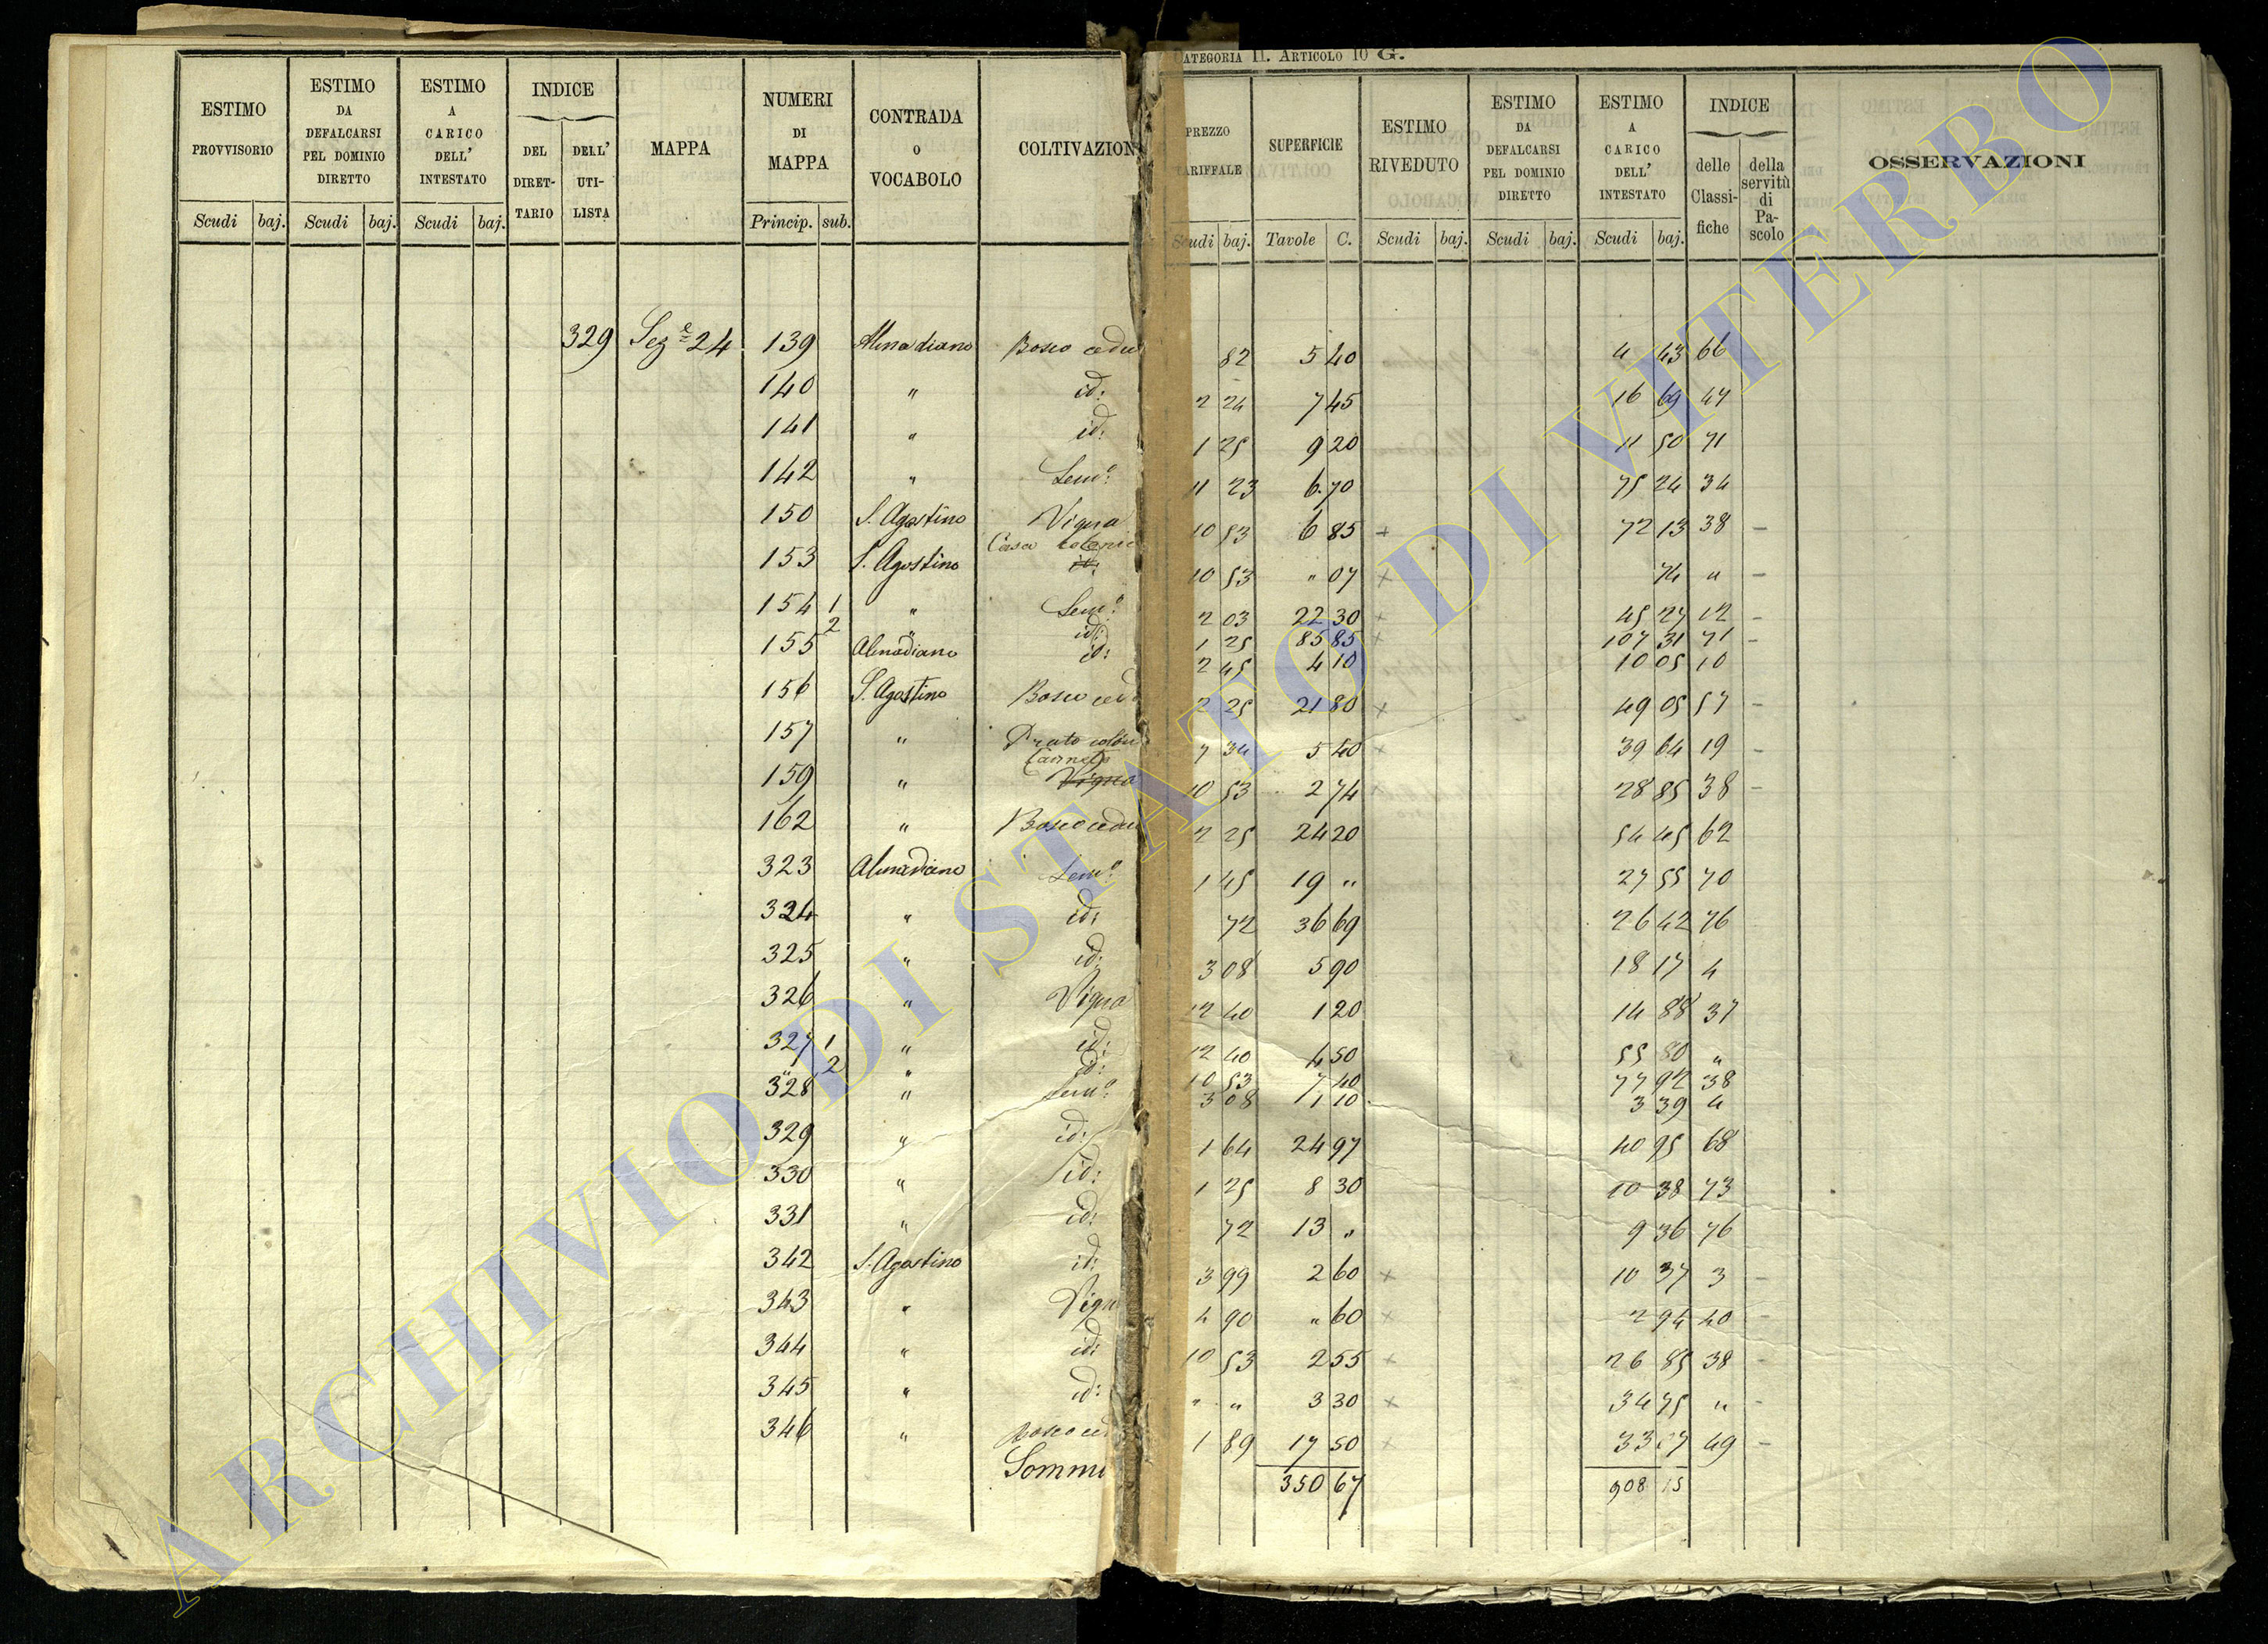 CATEGORIA II. ARTICOLO 10 G.
ESTIMO PROVVISORIO
ESTIMO DA DEFALCARSI PEL DOMINIO DIRETTO
ESTIMO A CARICO DELL' INTESTATO
INDICE
DEL DIRET- TARIO
DELL' UTI- LISTA
MAPPA
NUMERI DI MAPPA
CONTRADA O VOCABOLO
COLTIVAZION
PREZZO TARIFFALE
SUPERFICIE
ESTIMO RIVEDUTO
ESTIMO DA DEFALCARSI PEL DOMINIO DIRETTO
ESTIMO A CARICO DELL' INTESTATO
INDICE
delle Classi- fiche
della servitù di Pa- scolo
OSSERVAZIONI
Scudi baj. Scudi baj. Scudi baj. Princip. sub. Scudi baj. Tavole C. Scudi baj. Scudi baj. Scudi baj.
329 Sez.e 24 139 Almadiano Bosco cedu 82 5 40 4 43 66
140 " id: 2 24 7 45 16 69 47
141 " id: 1 25 9 20 11 50 71
142 " Semo: 11 23 6 70 75 24 34
150 S. Agostino Vigna 10 53 6 85 + 72 13 38 –
Casa colonic
153 S. Agostino id: 10 53 " 07 + 74 " –
154 1 " Semo: 2 03 22 30 + 45 27 12 –
2 " id: 1 25 85 85 + 107 31 71 –
155 Almadiano id: 2 45 4 10 10 05 10
156 S. Agostino Bosco ced 2 25 21 80 + 49 05 57 –
157 " Prato 7 34 5 40 + 39 64 19 –
159 " Vigna 10 53 2 74 + 28 85 38 –
162 " Bosco cedu 2 25 24 20 54 45 62
323 Almadiano Semo: 1 45 19 " 27 55 70
324 " id: 72 36 69 26 42 76
325 " id: 3 08 5 90 18 17 4
326 " Vigna 12 40 1 20 14 88 37
327 1 " id: 12 40 4 50 55 80 "
" 2 " id: 10 53 7 40 77 92 38
328 " Semo: 3 08 1 10 3 39 4
329 " id: 1 64 24 97 40 95 68
330 " id: 1 25 8 30 10 38 73
331 " id: 72 13 " 9 36 76
342 S. Agostino id: 3 99 2 60 + 10 37 3 –
343 " Vign 4 90 " 60 + 2 94 40 –
344 " id: 10 53 2 55 + 26 85 38 –
345 " id: " " 3 30 + 34 75 " –
346 " Bosco ced 1 89 17 50 + 33 07 49 –
Somm 350 67 908 15
ARCHIVIO DI STATO DI VITERBO